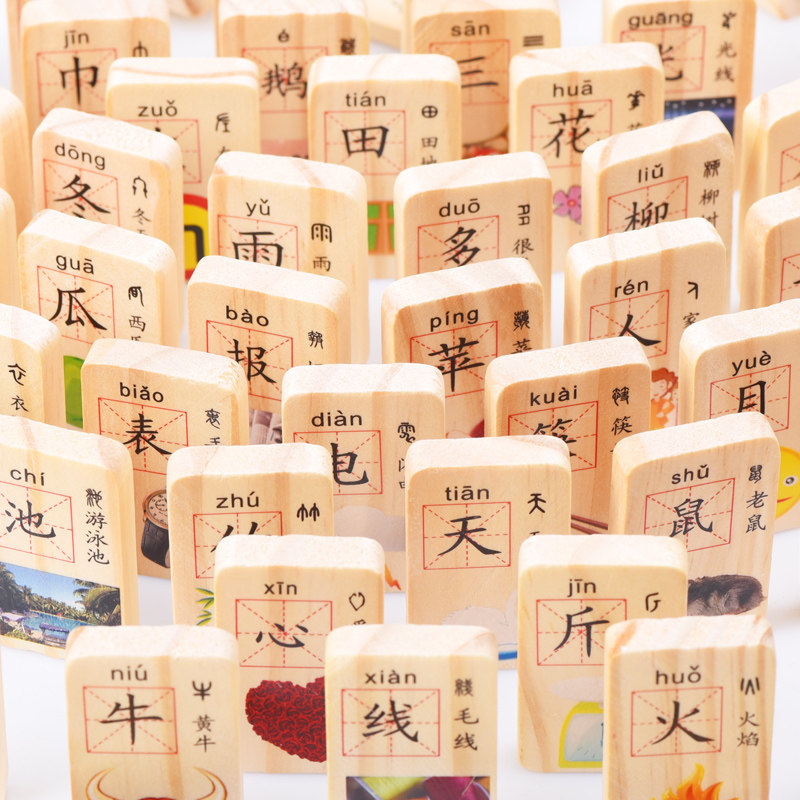 jīn
巾
é
鹅
sān
三
guāng
光线
zuǒ
tián
田
huā
花
dōng
冬
冬
yǔ
雨
雨
duō
多
很
liǔ
柳
柳树
guā
瓜
西瓜
bào
报
píng
苹
rén
人
家
yuè
月
衣
biǎo
表
手
diàn
电
kuài
筷
筷
chí
池
游泳池
zhú
tiān
天
天
shǔ
鼠
老鼠
xīn
心
jīn
斤
niú
牛
黄牛
xiàn
线
毛线
huǒ
火
火焰